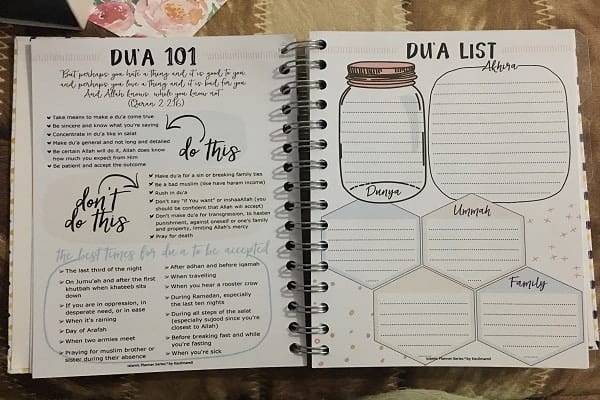 DU'A 101
"But perhaps you hate a thing and it is good for you
and perhaps you love a thing and it is bad for you.
And Allah knows, while you know not."
(Quran 2:216)
Take means to make a du'a come true
Be sincere and know what you're saying
Concentrate in du'a like in salat
Make du'a general and not long and detailed
Be certain Allah will do it, Allah does know
how much you expect from Him
Be patient and accept the outcome
do this
don't
do this
Make du'a for a sin or breaking family ties
Be a bad muslim (like have haram income)
Rush in du'a
Don't say "if You want" or inshaAllah (you
should be confident that Allah will accept)
Don't make du'a for transgression, to hasten
punishment, against oneself or one's family
and property, limiting Allah's mercy
Pray for death
the best times for du'a to be accepted
The last third of the night
On Jumu'ah and after the first
khuttbah when khateeb sits
down
If you are in oppression, in
desperate need, or in ease
When it's raining
Day of Arafah
When two armies meet
Praying for muslim brother or
sister during their absence
After adhan and before iqamah
When travelling
When you hear a rooster crow
During Ramadan, especially
the last ten nights
During all steps of the salat
(especially sujood since you're
closest to Allah)
Before breaking fast and while
you're fasting
When you're sick
Islamic Planner Series
DU'A LIST
Akhira
Dunya
Ummah
Family
Islamic Planner Series